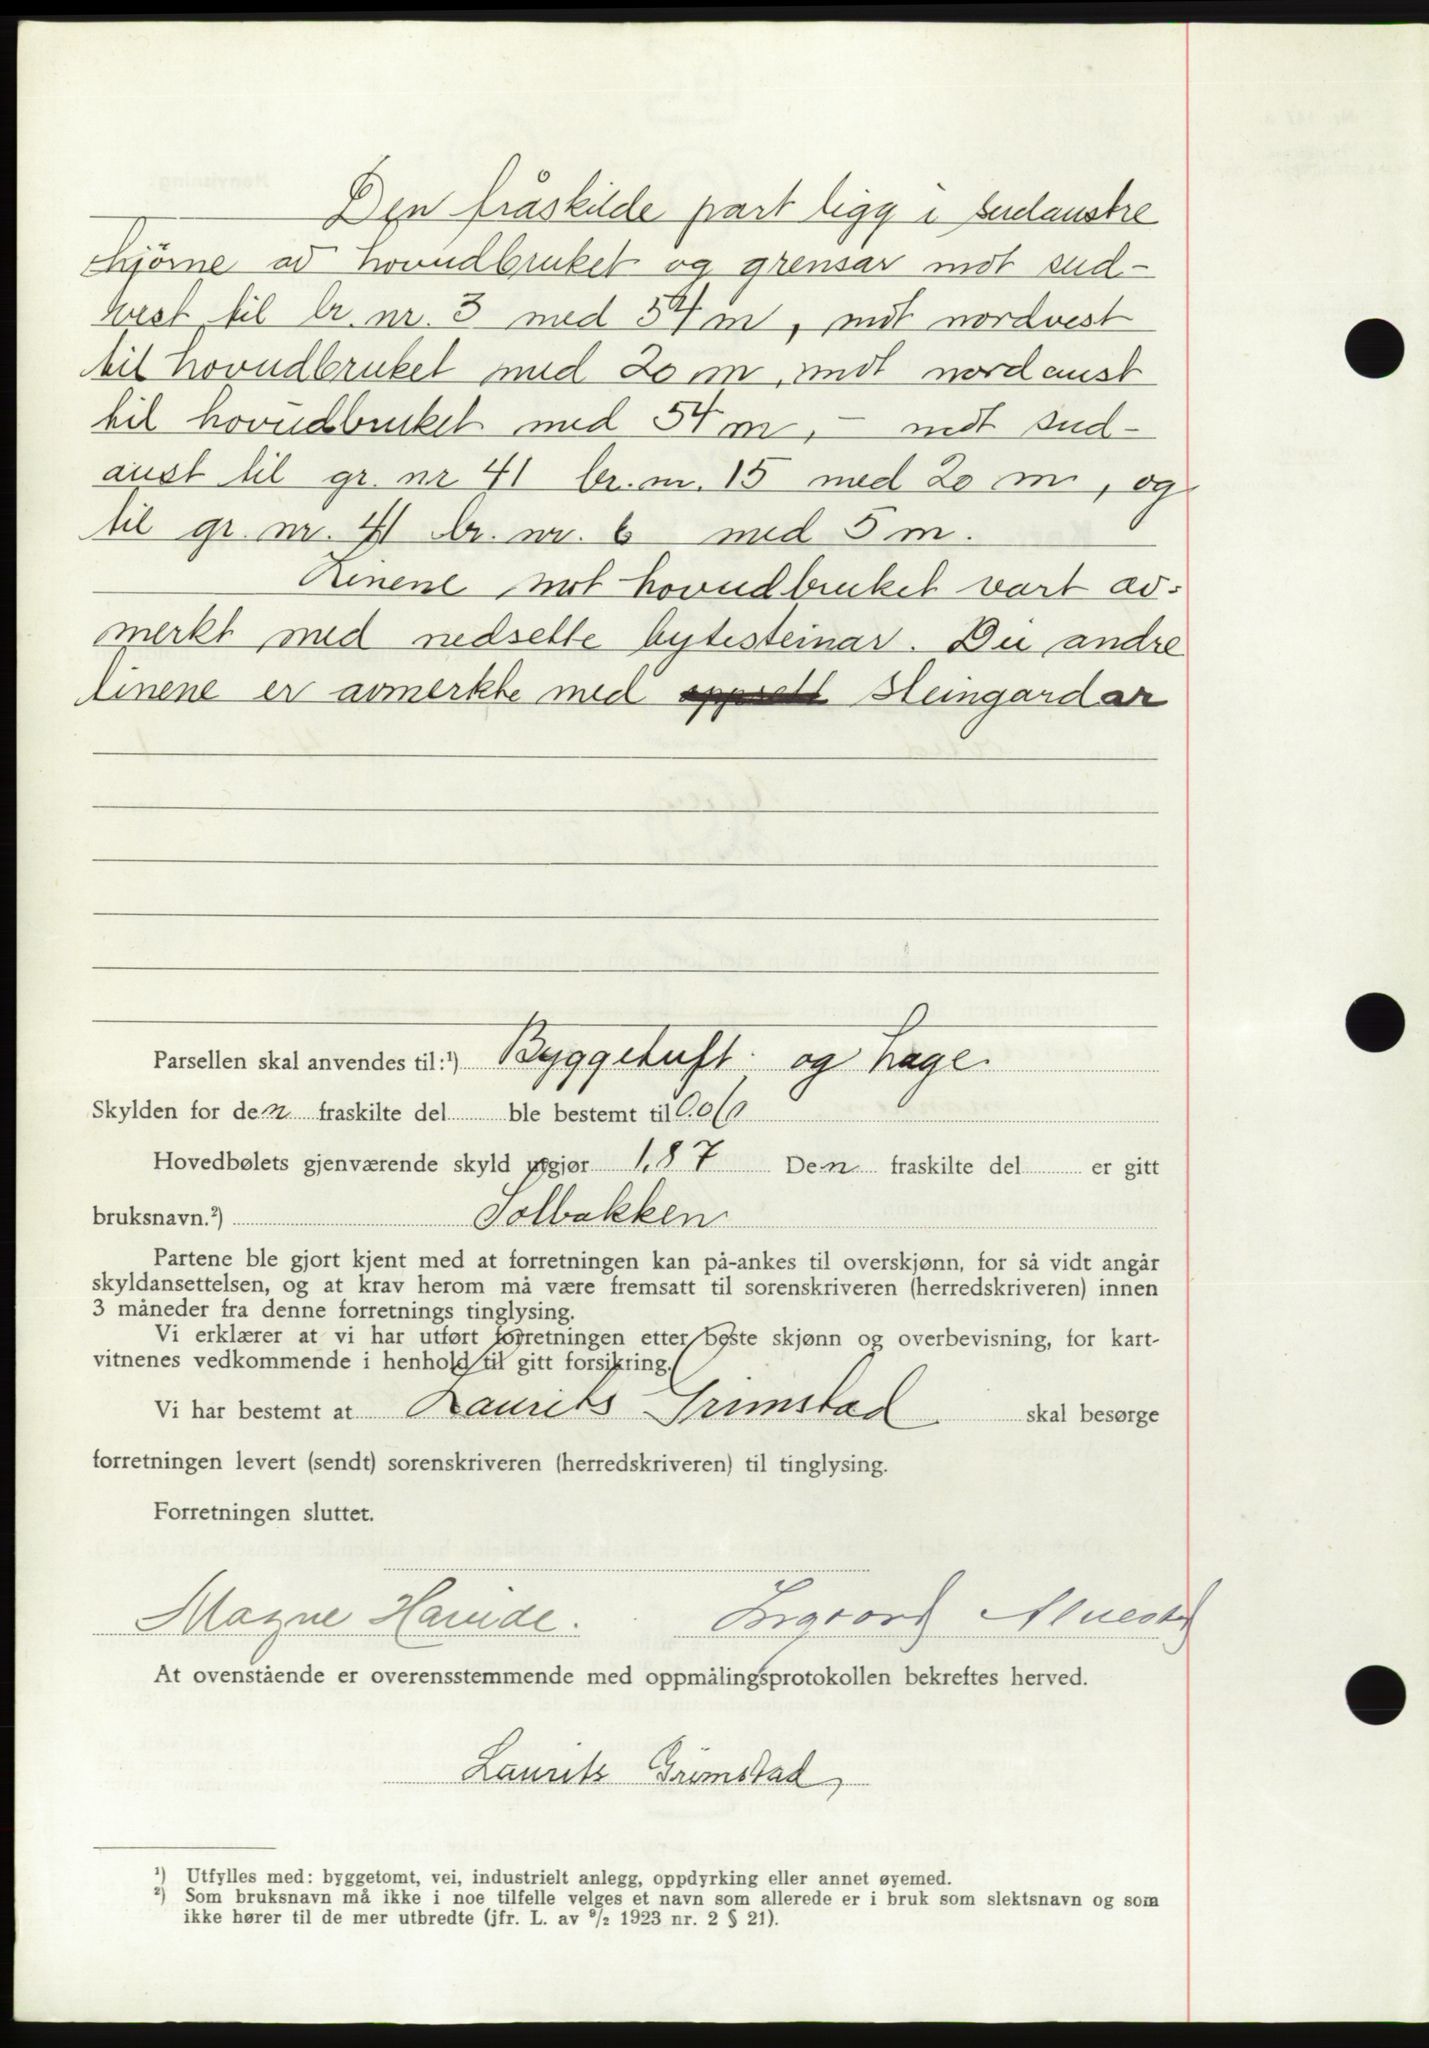 Den fråskilde part ligg i sudaustre
hjörne av hovudbruket og grensar mot sud-
vest til br. nr. 3 med 54 m, mot nordvest
til hovudbruket med 20 m, mot nordaust
til hovudbruket med 54 m, – mot sud-
aust til gr. nr 41 br. nr. 15 med 20 m, og
til gr. nr. 41 br. nr. 6 med 5 m.
Linene mot hovudbruket vart av-
merkt med nedsette bytesteinar. Dei andre
linene er avmerkte med steingardar
Parsellen skal anvendes til:¹) Byggetuft og hage.
Skylden for den fraskilte del ble bestemt til
Hovedbølets gjenværende skyld utgjør 1,87 Den fraskilte del er gitt
bruksnavn.²) Solbakken
Partene ble gjort kjent med at forretningen kan på-ankes til overskjønn, for så vidt angår
skyldansettelsen, og at krav herom må være fremsatt til sorenskriveren (herredskriveren) innen
3 måneder fra denne forretnings tinglysing.
Vi erklærer at vi har utført forretningen etter beste skjønn og overbevisning, for kart-
vitnenes vedkommende i henhold til gitt forsikring.
Vi har bestemt at Laurits Grimstad skal besørge
forretningen levert (sendt) sorenskriveren (herredskriveren) til tinglysing.
Forretningen sluttet.
Magne Hareide.
At ovenstående er overensstemmende med oppmålingsprotokollen bekreftes herved.
Laurits Grimstad
¹) Utfylles med: byggetomt, vei, industrielt anlegg, oppdyrking eller annet øyemed.
²) Som bruksnavn må ikke i noe tilfelle velges et navn som allerede er i bruk som slektsnavn og som
ikke hører til de mer utbredte (jfr. L. av ⁹/₂ 1923 nr. 2 § 21).